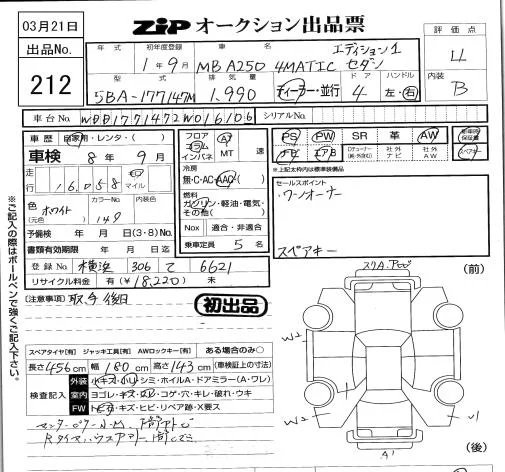 03月21日
ZIP オークション出品票
出品No.
212
評価点
4
内装
B
年式 初年度登録 車名
1年9月 MB A250 4MATIC エディション1 セダン
型式 排気量 ドア ハンドル
5BA-177147M 1,990 ディーラー・並行 4 左・右
車台No. WDD1771472W016106 シリアルNo.
車歴 自家用・レンタ・( )
車検 8年9月
走行 16,058 キロ マイル
色(元色) ホワイト カラーNo. 149 内装色
予備検 年 月 日(3・8)No.
書類有効期限 年 月 日迄
登録No. 横浜 306 て 6621
リサイクル料金 有(¥18,220) 未
フロア コラム インパネ AT MT 速
冷房 無・C・AC・AAC・( )
燃料 ガソリン・軽油・電気・その他( )
Nox 適合・非適合
乗車定員 5名
PS PW SR 革 AW 新車時保証書
ナビ エアB 社外ナビ 社外AW スペアキー
※上記太枠内は標準装備品
セールスポイント
ワンオーナー
スペアキー
注意事項 取、手後日
初出品
スペアタイヤ[有] ジャッキ工具[有] AWロックキー[有] ある場合のみ○
長さ456cm 幅180cm 高さ143cm (車検証上の寸法)
検査記入
外装 小キズ・小凹・シミ・ホイルA・ドアミラー(A・ワレ)
室内 ヨゴレ・キズ・スレ・コゲ・穴・キレ・破れ・ウキ
FW トビ石・キズ・ヒビ・リペア跡・X要ス
※ご記入の際はボールペンで強くご記入下さい。
(前)
W2
W2
A1
(後)